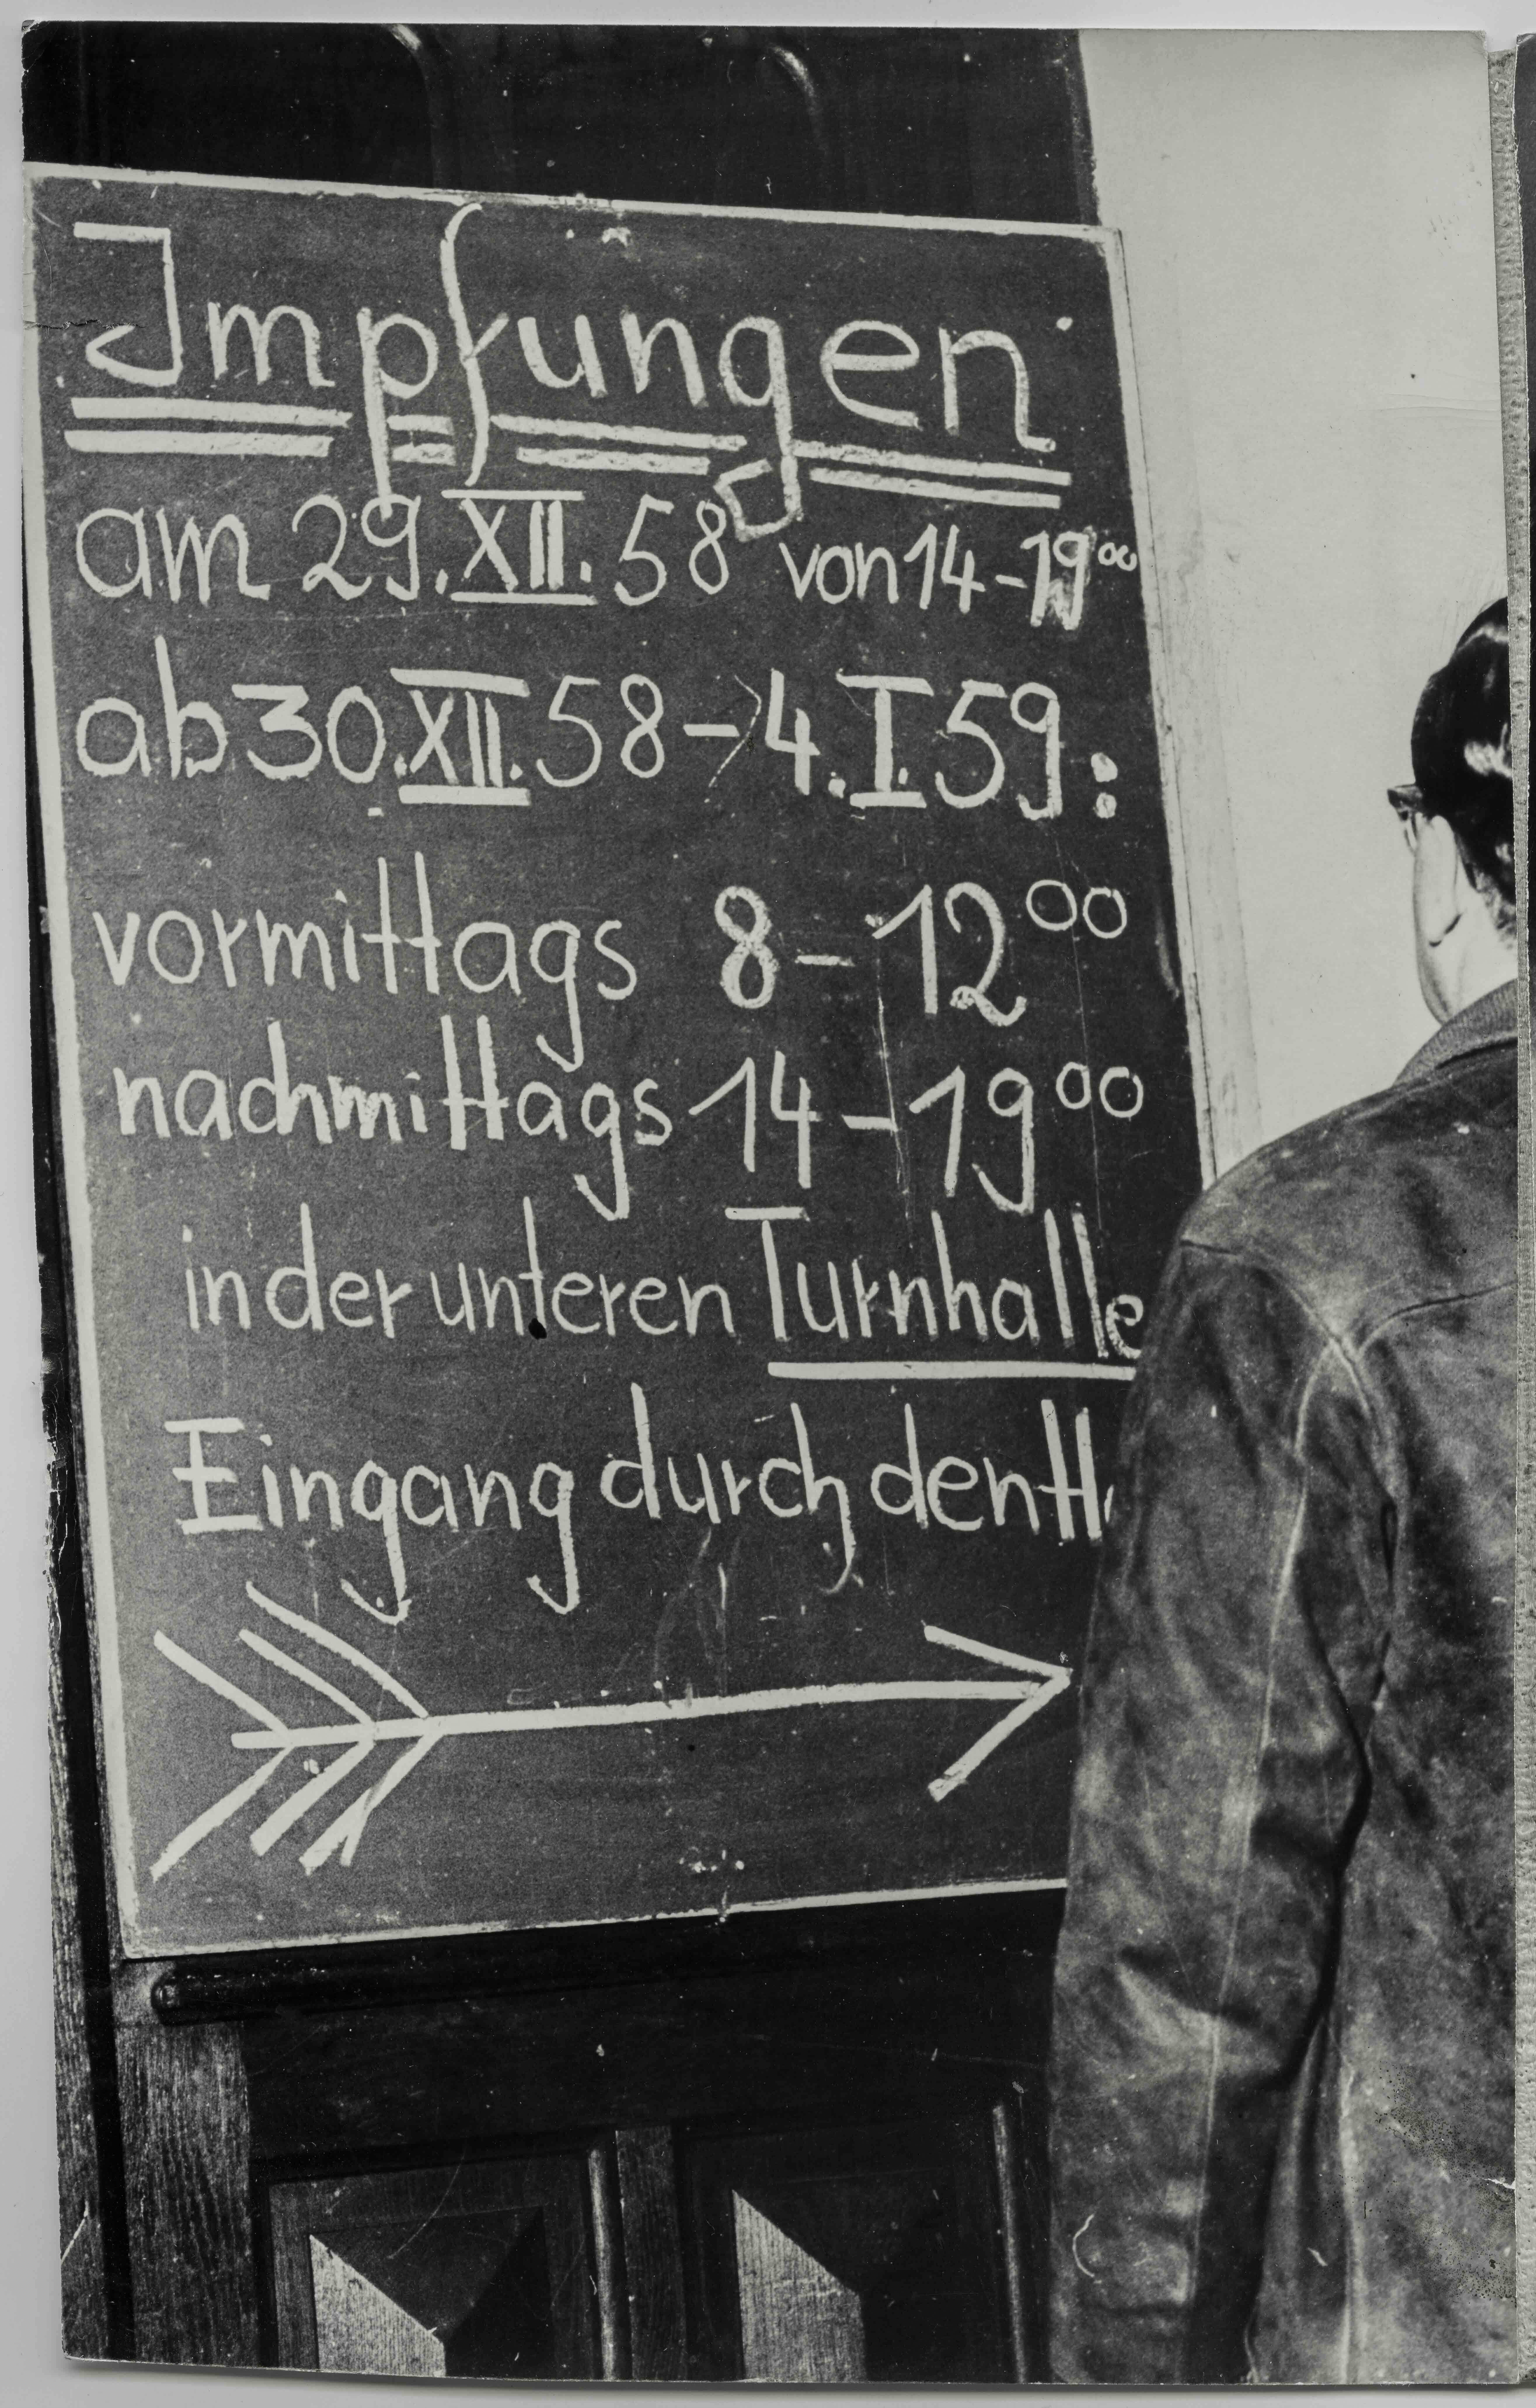 Impfungen
am 29. XII. 58 von 14-19⁰⁰
ab 30. XII. 58 - 4. I. 59:
vormittags 8 - 12⁰⁰
nachmittags 14 - 19⁰⁰
in der unteren Turnhalle
Eingang durch den